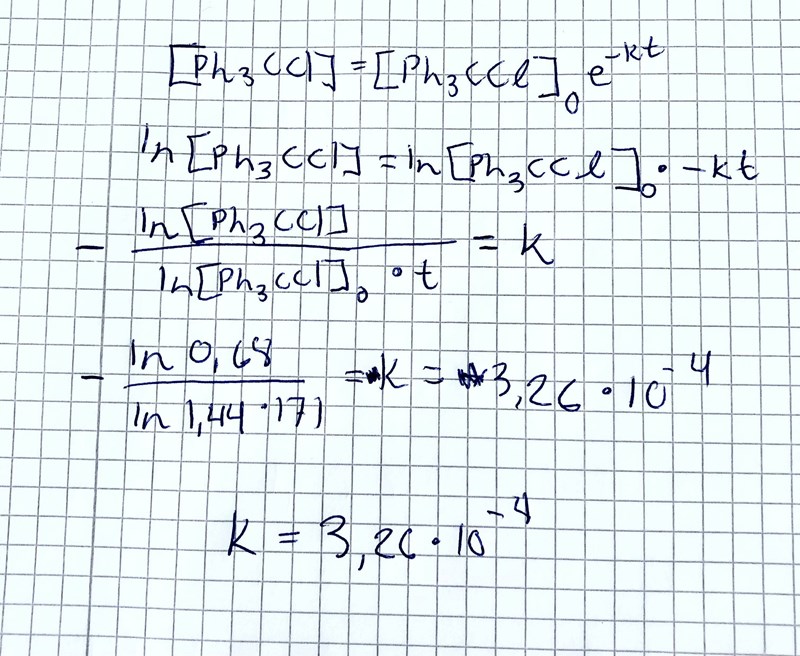 [Ph₃CCl] = [Ph₃CCl]₀ e^-kt
ln [Ph₃CCl] = ln [Ph₃CCl]₀ · -kt
- ln [Ph₃CCl] / ln [Ph₃CCl]₀ · t = k
- ln 0,68 / ln 1,44 · 171 = k = 3,26 · 10^-4
k = 3,26 · 10^-4